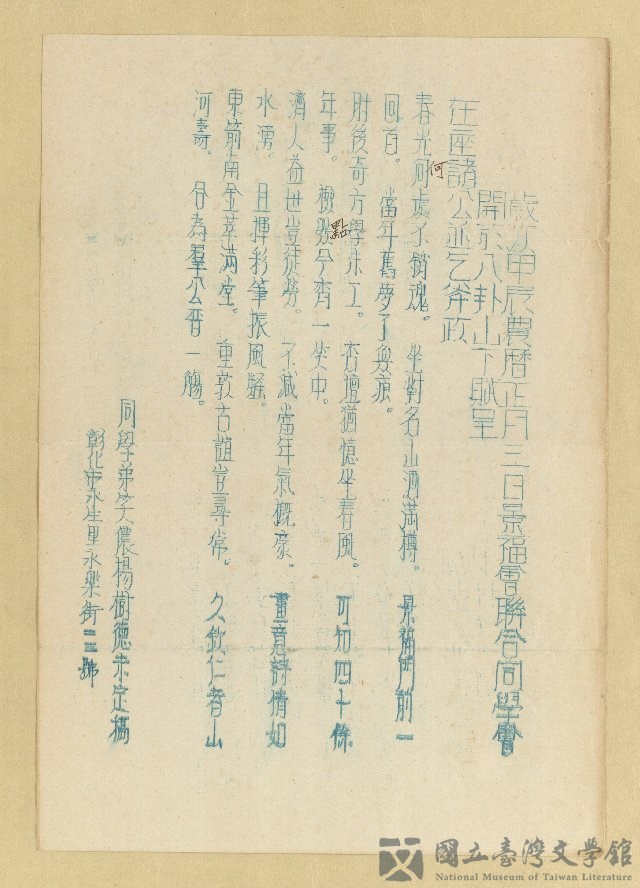 歲次甲辰農曆正月三日景福會聯合同學會
開於八卦山下賦呈
在座諸公並乞斧政
春光何處不銷魂。坐對名山酒滿樽。景福門前一
回首。當年舊夢了無痕。
肘後奇方學未工。杏壇猶憶坐春風。可知四十餘
年事。櫻點今齊一笑中。
濟人益世豈徒勞。不減當年氣概豪。畫意詩情如
水湧。且揮彩筆振風騷。
東箭南金萃滿堂。重敦古誼豈尋常。久欽仁者山
河壽。合為羣公晉一觴。
同學弟笑儂楊樹德未定稿
彰化市永生里永樂街二三號
國立臺灣文學館
National Museum of Taiwan Literature